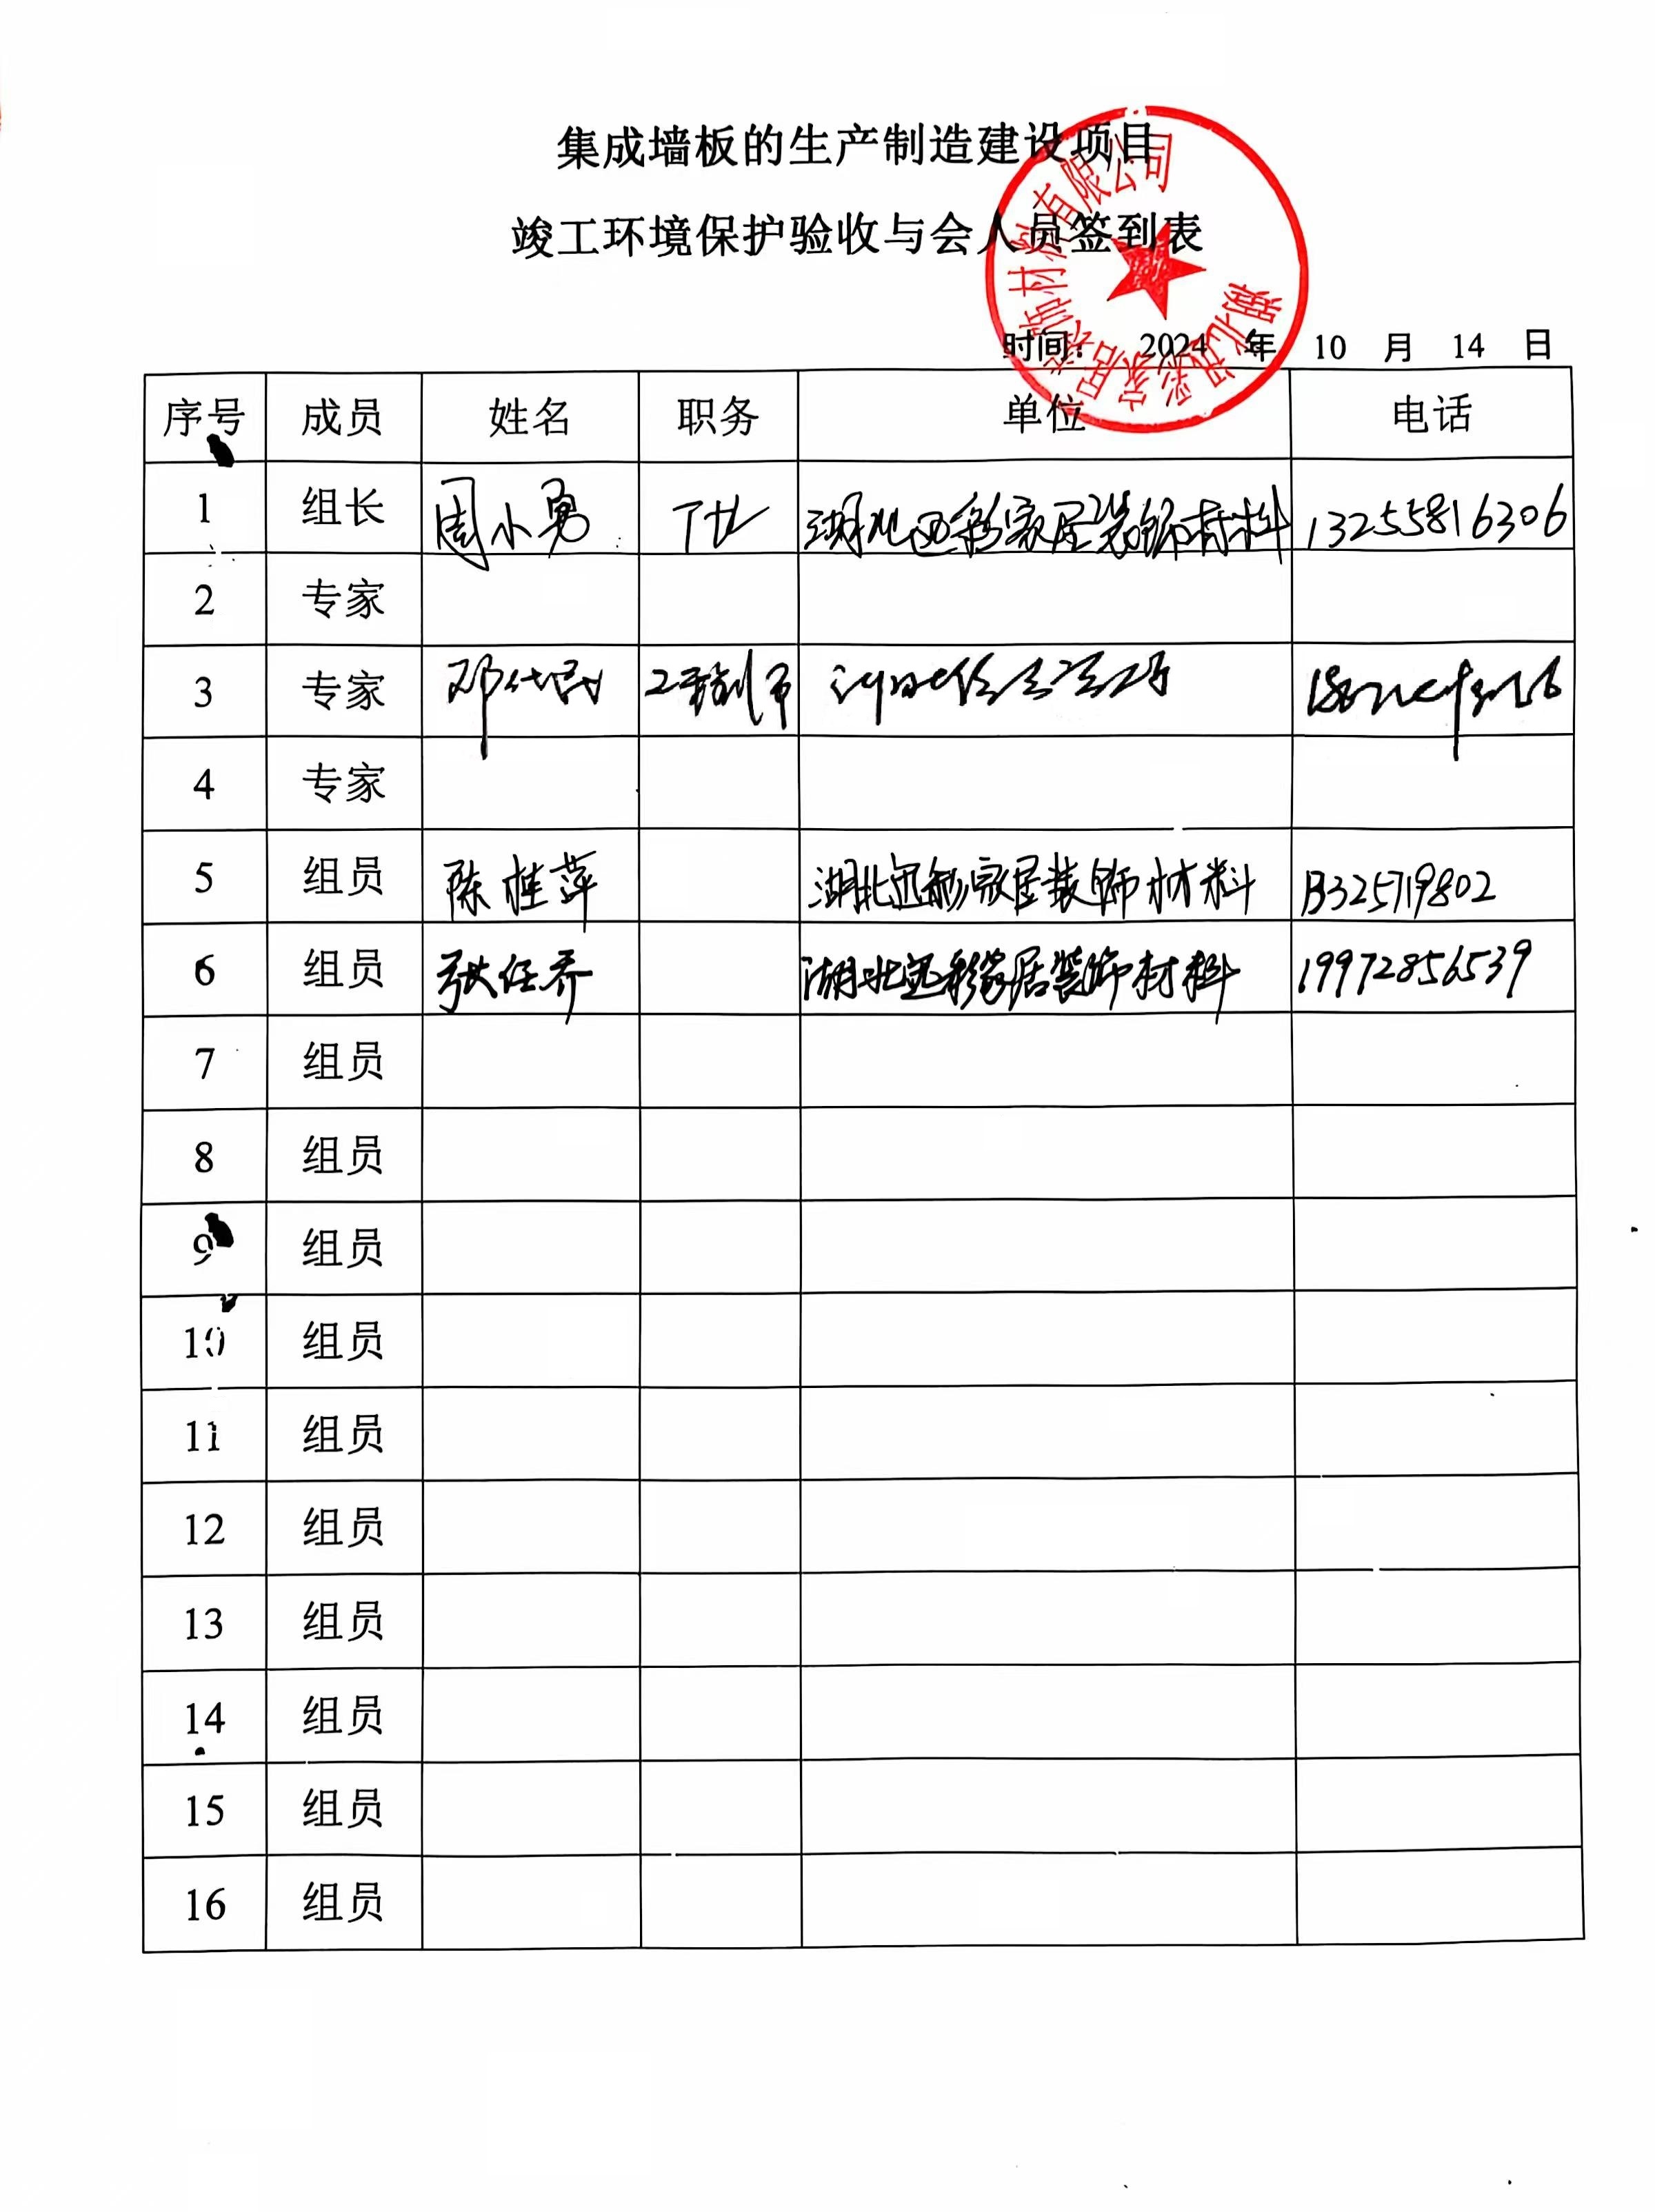 集成墙板的生产制造建设项目
竣工环境保护验收与会人员签到表
湖北迅彩家居装饰材料有限公司
时间： 2024 年 10 月 14 日
序号 成员 姓名 职务 单位 电话
1 组长 周小勇 厂长 湖北迅彩家居装饰材料 13255816306
2 专家
3 专家 邓 工程师
4 专家
5 组员 陈桂萍 湖北迅彩家居装饰材料 13325719802
6 组员 张任乔 湖北迅彩家居装饰材料 19972856539
7 组员
8 组员
9 组员
10 组员
11 组员
12 组员
13 组员
14 组员
15 组员
16 组员